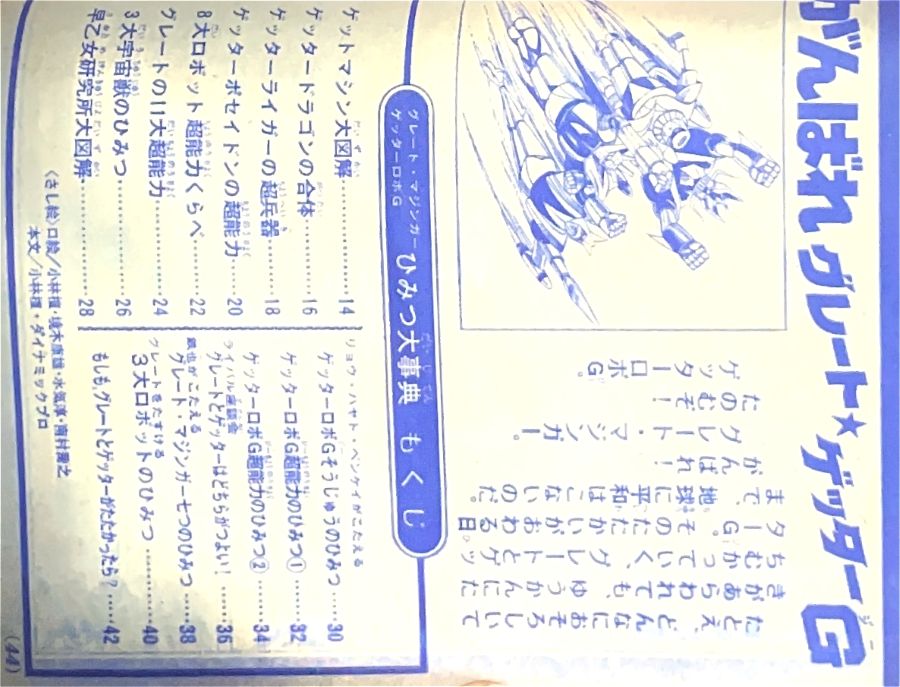 がんばれ グレート★ゲッターG
たとえ、どんなにおそろしいて
きがあらわれても、ゆうかんにた
ちむかっていく、グレートとゲッ
ターG。そのたたかいがおわる日
まで、地球に平和はこないのだ。
がんばれ!
グレート・マジンガー。
たのむぞ!
ゲッターロボG。
グレート・マジンガー
ゲッターロボG
ひみつ大事典 もくじ
ゲットマシン大図解……14
ゲッタードラゴンの合体……16
ゲッターライガーの超兵器……18
ゲッターポセイドンの超能力……20
8大ロボット超能力くらべ……22
グレートの11大超能力……24
3大宇宙獣のひみつ……26
早乙女研究所大図解……28
リョウ・ハヤト・ベンケイがこたえる
ゲッターロボGそうじゅうのひみつ……30
ゲッターロボG超能力のひみつ①……32
ゲッターロボG超能力のひみつ②……34
ライバル座談会
グレートとゲッターはどちらがつよい!……36
鉄也がこたえる
グレート・マジンガー七つのひみつ……38
グレートをたすける
3大ロボットのひみつ……40
もしも、グレートとゲッターがたたかったら?……42
〈さし絵〉口絵/小林檀・境木康雄・水気淳・南村喬之
本文/小林檀・ダイナミックプロ
(44)